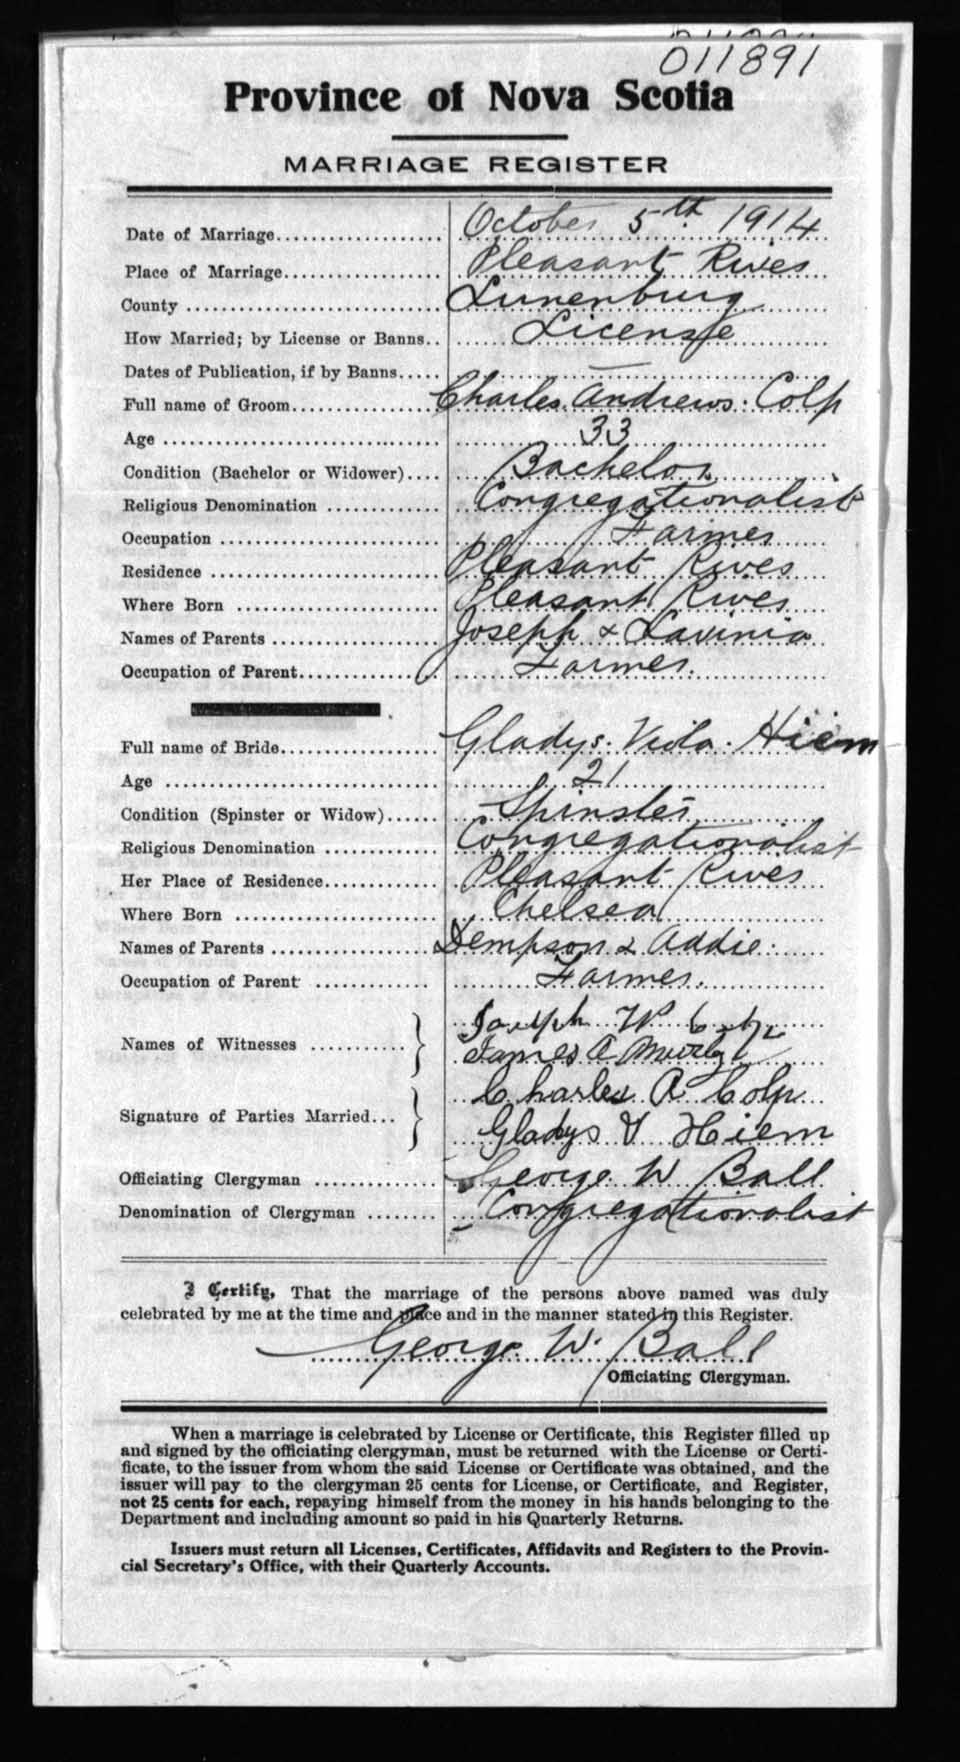 011891
Province of Nova Scotia
MARRIAGE REGISTER
Date of Marriage.................... October 5th 1914
Place of Marriage.................. Pleasant River
County ............................ Lunenburg
How Married; by License or Banns.. License
Dates of Publication, if by Banns..... —
Full name of Groom................. Charles Andrews Colp
Age ................................ 33
Condition (Bachelor or Widower).... Bachelor
Religious Denomination ............. Congregationalist
Occupation ......................... Farmer
Residence .......................... Pleasant River
Where Born ........................ Pleasant River
Names of Parents ................... Joseph & Lavinia
Occupation of Parent................ Farmer
Full name of Bride.................. Gladys Viola Hiem
Age ................................ 21
Condition (Spinster or Widow)...... Spinster
Religious Denomination ............. Congregationalist
Her Place of Residence.............. Pleasant River
Where Born ........................ Chelsea
Names of Parents ................... Dempson & Addie
Occupation of Parent ............... Farmer
Names of Witnesses ............ } Joseph W
James A
Signature of Parties Married... } Charles A Colp
Gladys V Hiem
Officiating Clergyman .............. George W Ball
Denomination of Clergyman ........ Congregationalist
I Certify, That the marriage of the persons above named was duly
celebrated by me at the time and place and in the manner stated in this Register.
George W. Ball
Officiating Clergyman.
When a marriage is celebrated by License or Certificate, this Register filled up
and signed by the officiating clergyman, must be returned with the License or Certi-
ficate, to the issuer from whom the said License or Certificate was obtained, and the
issuer will pay to the clergyman 25 cents for License, or Certificate, and Register,
not 25 cents for each, repaying himself from the money in his hands belonging to the
Department and including amount so paid in his Quarterly Returns.
Issuers must return all Licenses, Certificates, Affidavits and Registers to the Provin-
cial Secretary's Office, with their Quarterly Accounts.